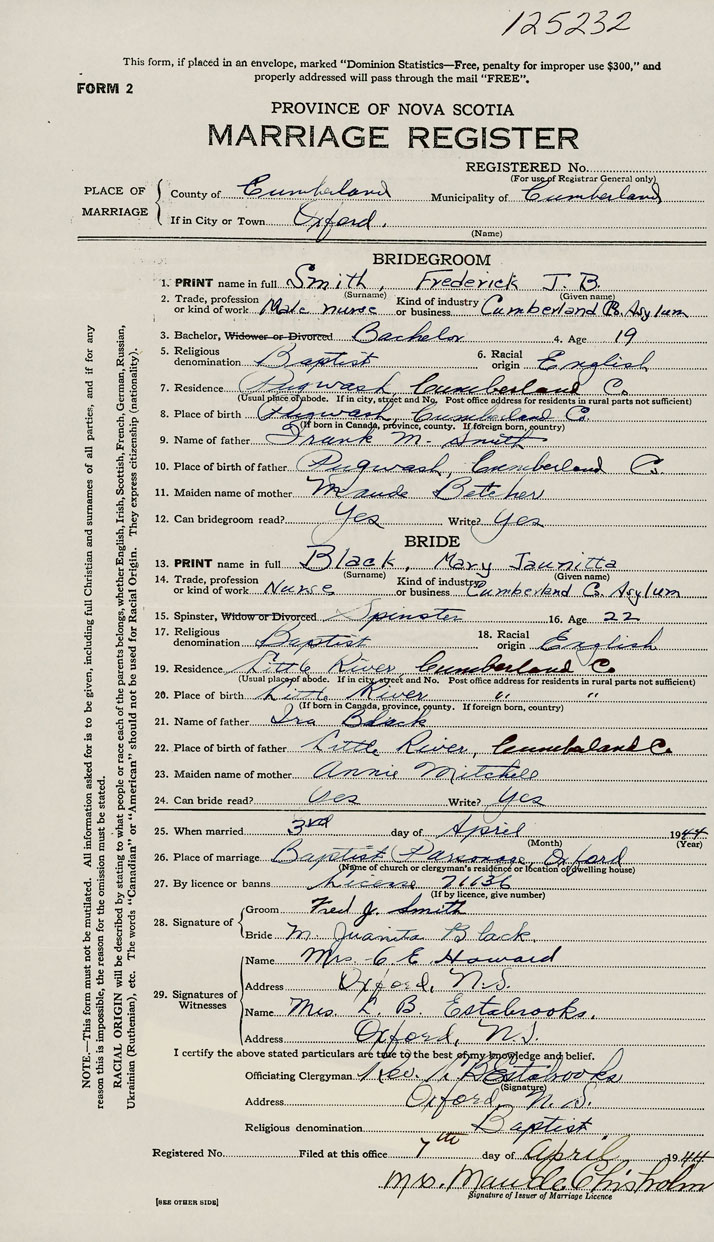 125232
This form, if placed in an envelope, marked "Dominion Statistics—Free, penalty for improper use $300," and
properly addressed will pass through the mail "FREE".
FORM 2
PROVINCE OF NOVA SCOTIA
MARRIAGE REGISTER
REGISTERED No.
(For use of Registrar General only)
PLACE OF MARRIAGE
County of Cumberland Municipality of Cumberland
If in City or Town Oxford.
(Name)
BRIDEGROOM
1. PRINT name in full Smith, Frederick J. B.
(Surname) (Given name)
2. Trade, profession or kind of work Male nurse Kind of industry or business Cumberland Co. Asylum
3. Bachelor, Widower or Divorced Bachelor 4. Age 19
5. Religious denomination Baptist 6. Racial origin English
7. Residence Pugwash Cumberland C.
(Usual place of abode. If in city, street and No. Post office address for residents in rural parts not sufficient)
8. Place of birth Pugwash, Cumberland C.
(If born in Canada, province, county. If foreign born, country)
9. Name of father Frank M. Smith
10. Place of birth of father Pugwash, Cumberland C.
11. Maiden name of mother Maude Betcher
12. Can bridegroom read? Yes Write? Yes
BRIDE
13. PRINT name in full Black, Mary Jaunitta
(Surname) (Given name)
14. Trade, profession or kind of work Nurse Kind of industry or business Cumberland C. Asylum
15. Spinster, Widow or Divorced Spinster 16. Age 22
17. Religious denomination Baptist 18. Racial origin English
19. Residence Little River Cumberland C.
(Usual place of abode. If in city, street and No. Post office address for residents in rural parts not sufficient)
20. Place of birth Little River " "
(If born in Canada, province, county. If foreign born, country)
21. Name of father Ira Black
22. Place of birth of father Little River, Cumberland C.
23. Maiden name of mother Annie Mitchell
24. Can bride read? Yes Write? Yes
25. When married 3rd day of April 1944
(Month) (Year)
26. Place of marriage Baptist Parsonage, Oxford
(Name of church or clergyman's residence or location of dwelling house)
27. By licence or banns License 71636
(If by licence, give number)
28. Signature of
Groom Fred J. Smith
Bride M. Juanita Black.
29. Signatures of Witnesses
Name Mrs. C E Howard
Address Oxford, N.S.
Name Mrs. L. B. Estabrooks.
Address Oxford, N.S.
I certify the above stated particulars are true to the best of my knowledge and belief.
Officiating Clergyman Rev. L B Estabrooks
(Signature)
Address Oxford, N. S.
Religious denomination Baptist
Registered No. Filed at this office 7th day of April 1944
Mrs. Maude Chisholm
Signature of Issuer of Marriage Licence
[SEE OTHER SIDE]
NOTE.—This form must not be mutilated. All information asked for is to be given, including full Christian and surnames of all parties, and if for any
reason this is impossible, the reason for the omission must be stated.
RACIAL ORIGIN will be described by stating to what people or race each of the parents belongs, whether English, Irish, Scottish, French, German, Russian,
Ukrainian (Ruthenian), etc. The words "Canadian" or "American" should not be used for Racial Origin. They express citizenship (nationality).